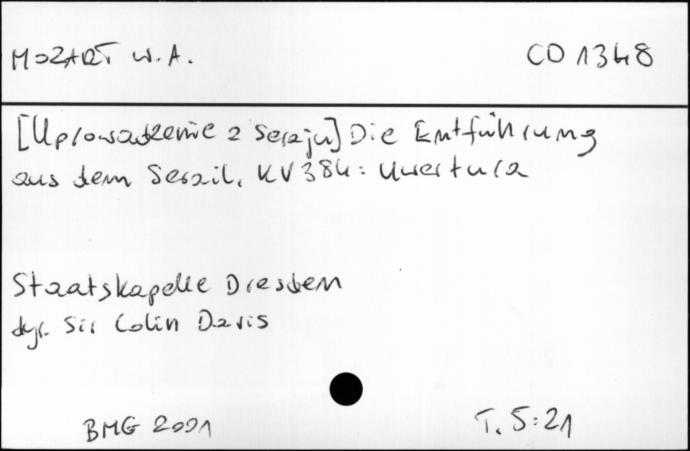 MOZART W.A.
CD 1348
[Uprowadzenie z Seraju] Die Entführung
aus dem Serail, KV 384: Uwertura
Staatskapelle Dresden
dyr. Sir Colin Davis
BMG 2001
T. 5:21